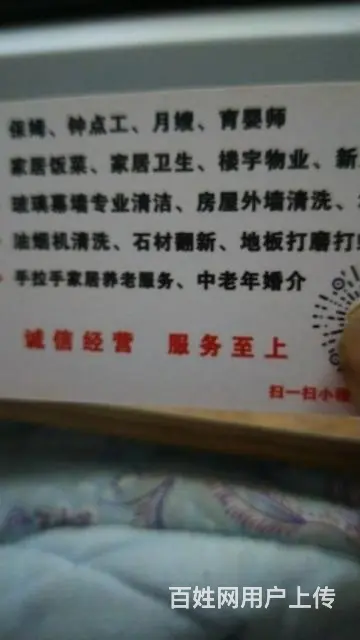 保姆、钟点工、月嫂、育婴师
家居饭菜、家居卫生、楼宇物业、新
玻璃幕墙专业清洁、房屋外墙清洗、
油烟机清洗、石材翻新、地板打磨打
手拉手家居养老服务、中老年婚介
诚信经营 服务至上
扫一扫小
百姓网用户上传